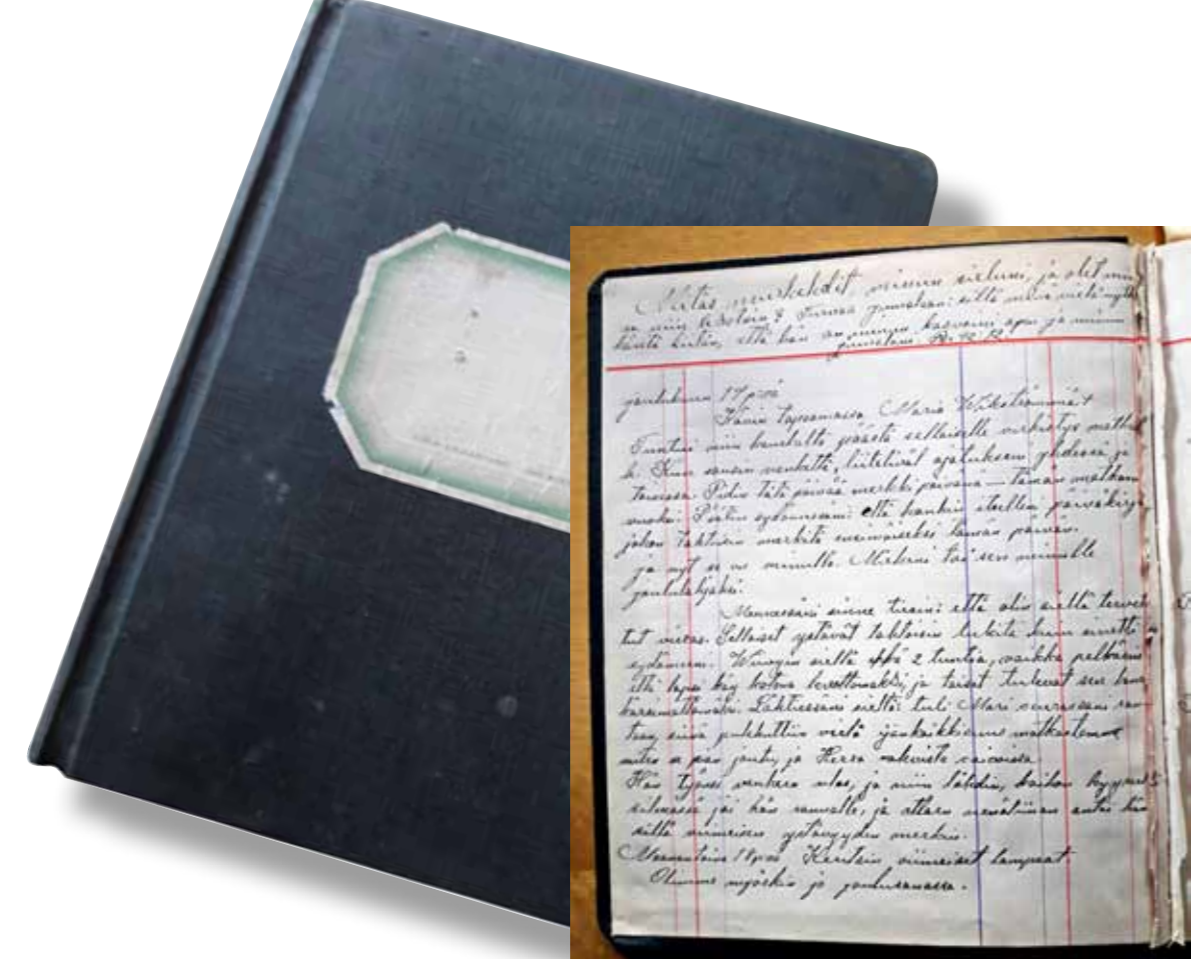 Mitäs murehdit, minun sieluni, ja olet min
niin levoton? Turvaa Jumalaan: sillä minä vielä
häntä kiitän, että hän on minun kasvoini apu ja minun
Jumalani. Ps. 42.12.
joulukuun 17 p:nä
Kävin tapaamassa Maria Wikströmmiä
Tuntui niin hauskalta päästä sellaiselle virkistys matkal
le. Kun sousin venettä, liitelivät ajatukseni yhdessä ja
toisessa Pidin tätä päivää merkki päivänä — tämän matkan
vuoksi. Päätin sydämessäni: että hankin itselleni päiväkirja
johon tahtoisin merkitä ensimäiseksi tämän päivän.
ja nyt se on minulla. Mieheni toi sen minulle
joululahjaksi.
Mennessäni sinne tiesin: että olin siellä tervet
tut vieras. Sellaiset ystävät tahtoisin lukita kuin
sydämeen. Wiivyin siellä 2 tuntia, vaikka pelkäsin
että lapsi käy kotona levottomaksi, ja toiset tulevat sen
kärsimättömäksi. Lähtiessäni sieltä: tuli Mari seurassani ran
taan, siinä puhuttiin vielä matkastamme
miten se pian joutuu, ja Herra vaivoissa
Hän työnsi venheen ulos, ja niin lähdin, kaihon kyynel
silmässä jäi hän rannalle, ja ottaen nenäliinan antoi hän
sillä viimeisen ystävyyden merkin.
18 p:nä Keritsin viimeiset lampaat.
Olimme myöskin jo joulusaunassa.